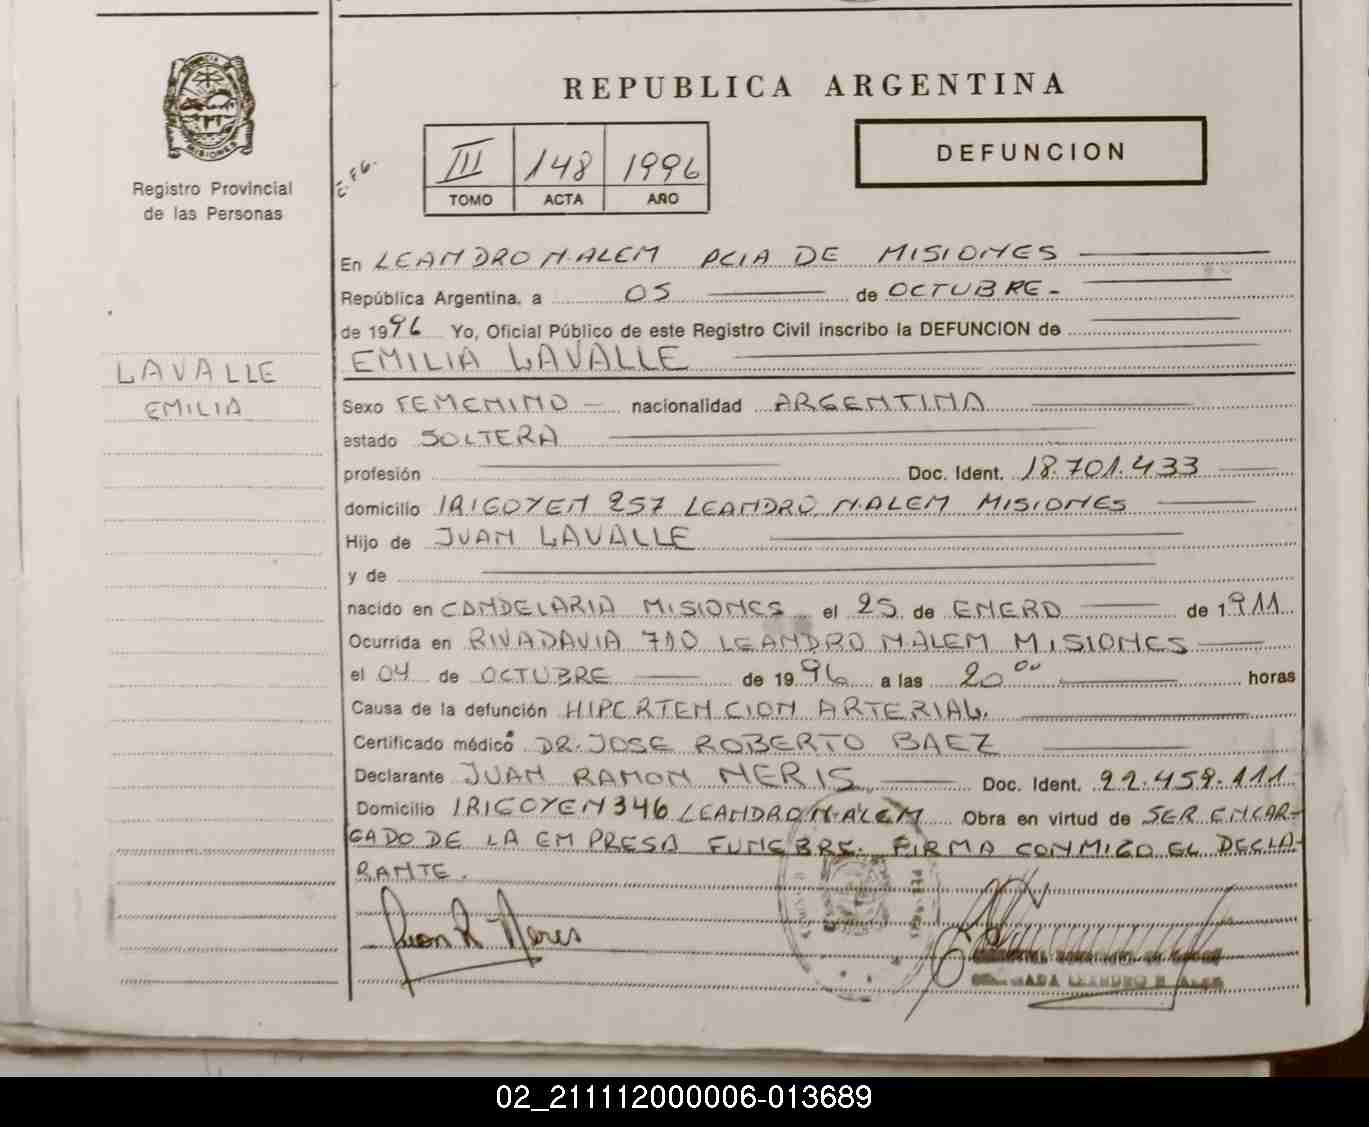 REPUBLICA ARGENTINA
PROVINCIA
MISIONES
Registro Provincial
de las Personas
III 148 1996
TOMO ACTA AÑO
DEFUNCION
En LEANDRO N. ALEM PCIA DE MISIONES
República Argentina, a 05 de OCTUBRE.-
de 1996 Yo, Oficial Público de este Registro Civil inscribo la DEFUNCION de
EMILIA LAVALLE
LAVALLE
EMILIA
Sexo FEMENINO - nacionalidad ARGENTINA
estado SOLTERA
profesión Doc. Ident. 18.701.433
domicilio IRIGOYEN 257 LEANDRO N. ALEM MISIONES
Hijo de JUAN LAVALLE
y de
nacido en CANDELARIA MISIONES el 25 de ENERO de 1911
Ocurrida en RIVADAVIA 710 LEANDRO N. ALEM MISIONES
el 04 de OCTUBRE de 1996 a las 20 00 horas
Causa de la defunción HIPERTENCION ARTERIAL.
Certificado médico DR. JOSE ROBERTO BAEZ
Declarante JUAN RAMON NERIS Doc. Ident. 22.459.111
Domicilio IRIGOYEN 346 LEANDRO N. ALEM Obra en virtud de SER ENCAR-
GADO DE LA EMPRESA FUNEBRE. FIRMA CONMIGO EL DECLA-
RANTE.
Juan R Neris
LEANDRO N. ALEM
02_211112000006-013689